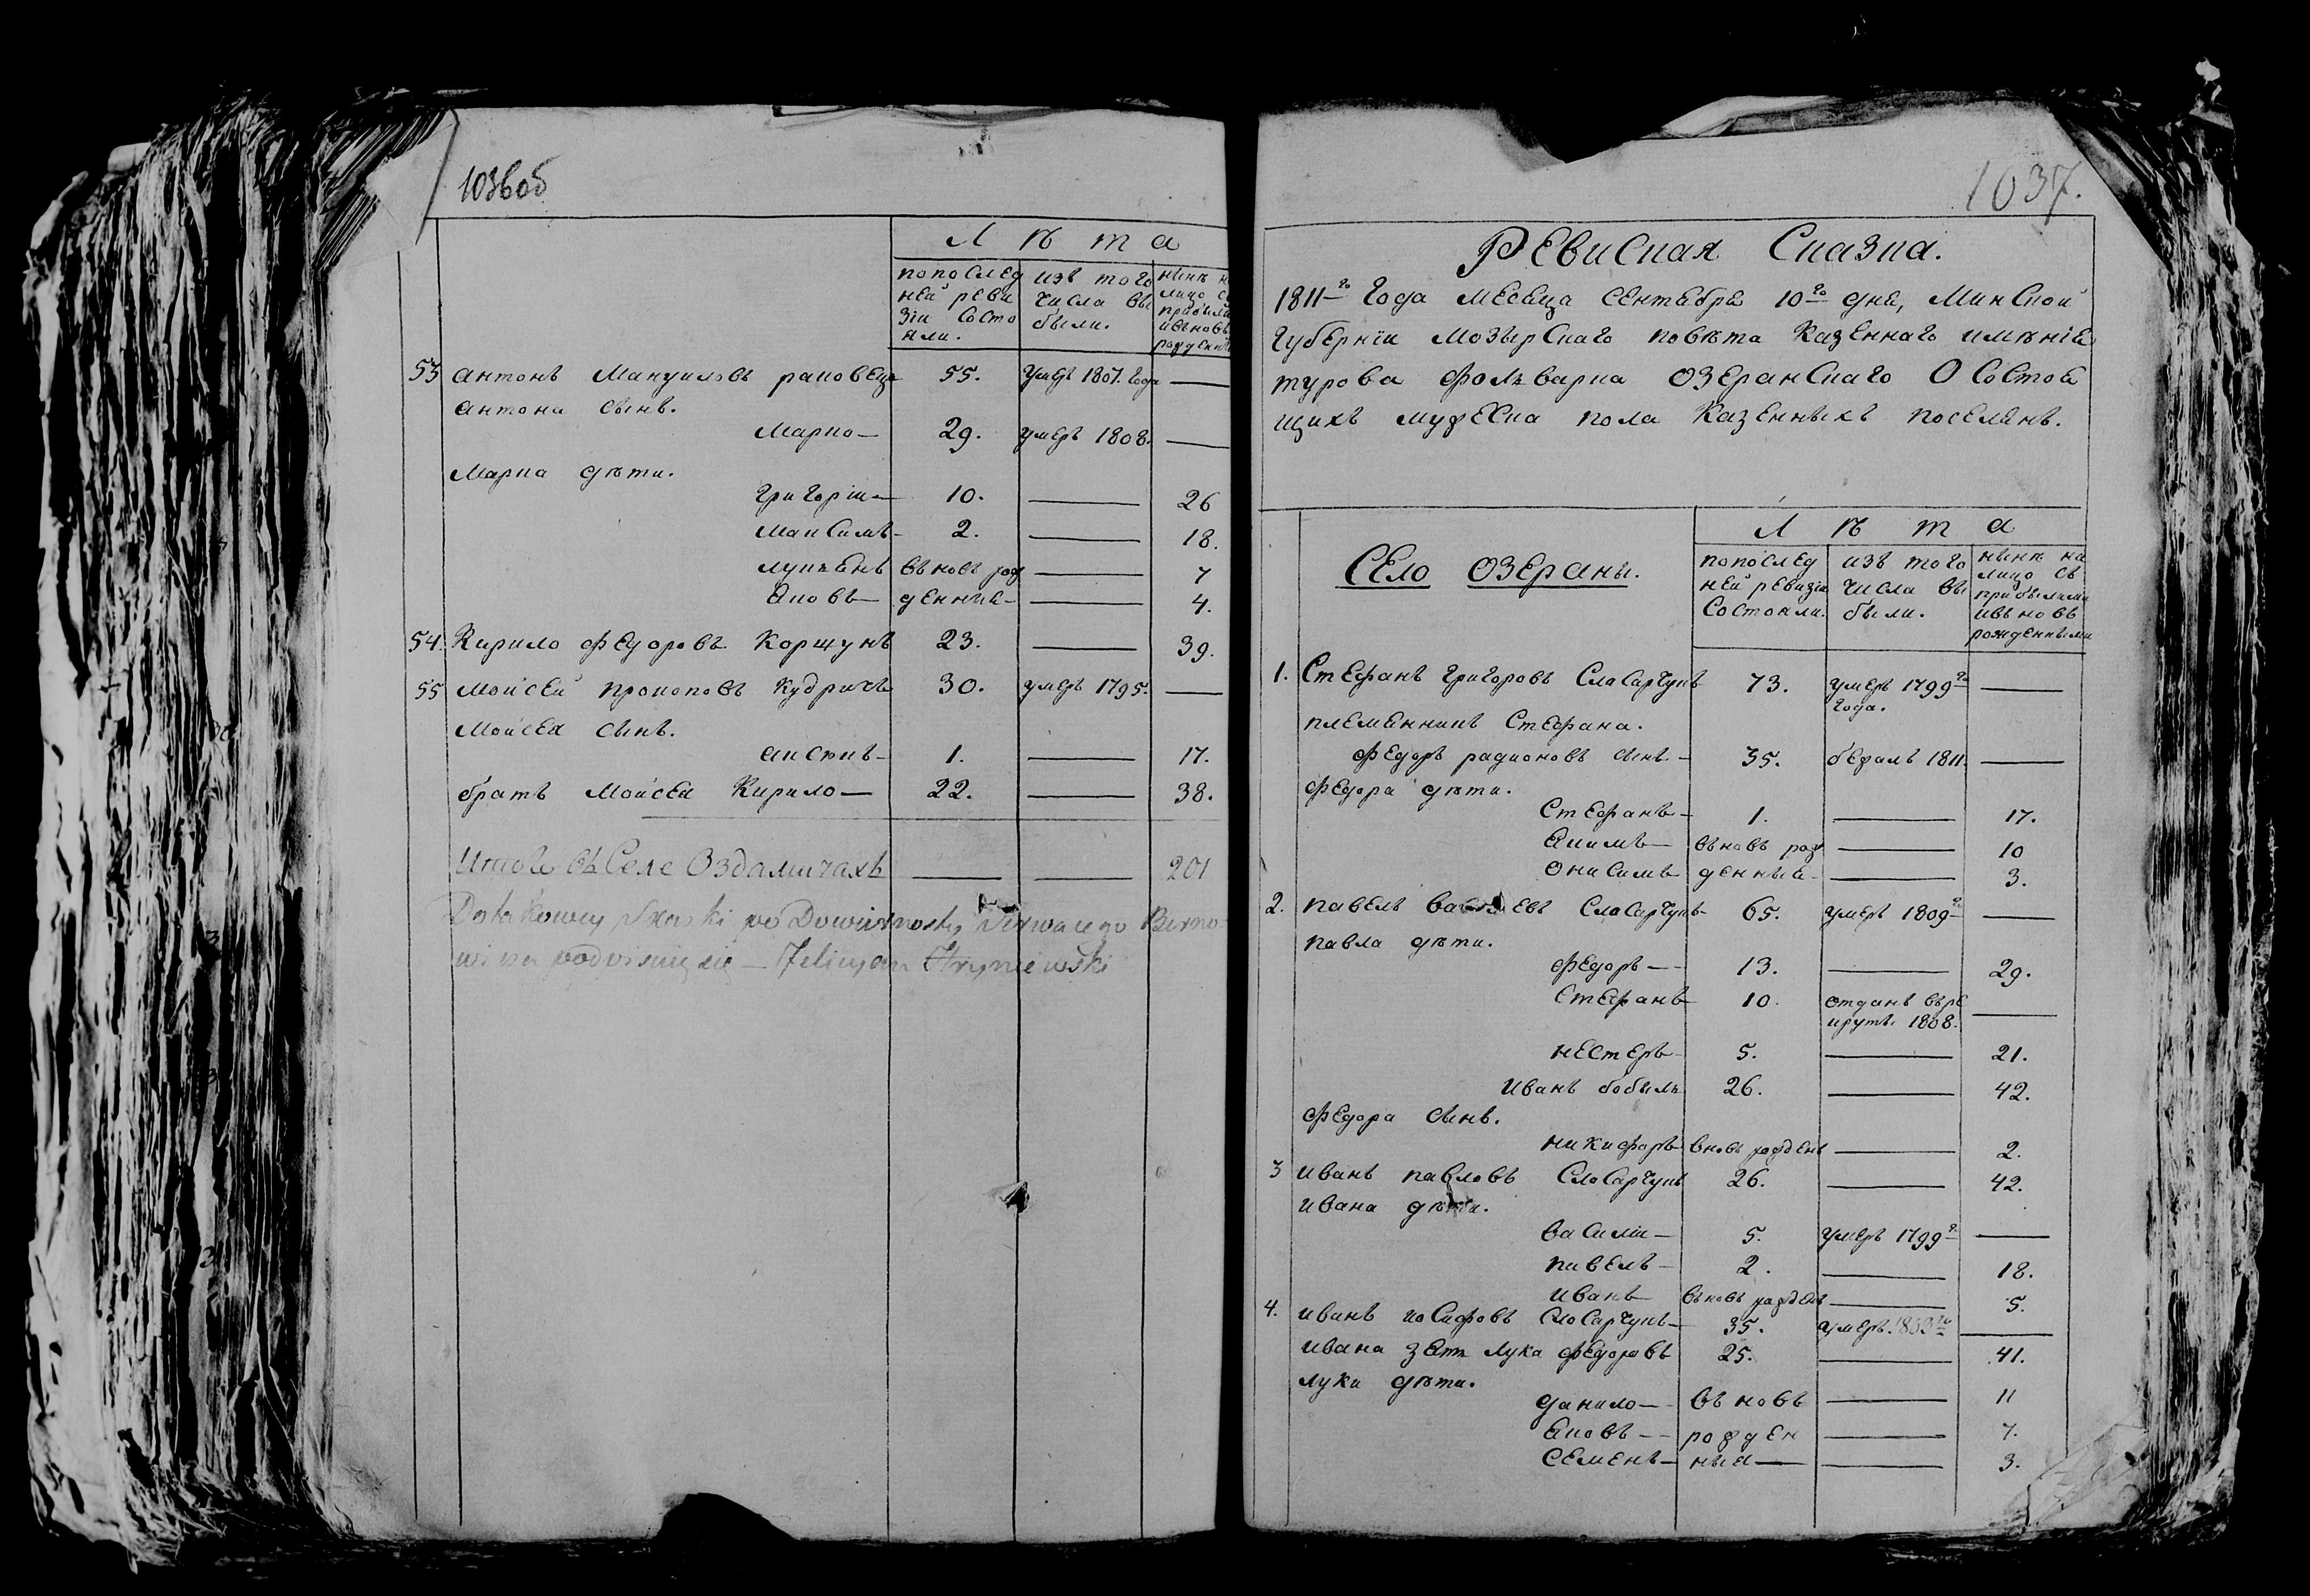 1036об
Лѣта
попослед ней реви зіи состо яли.
изъ того числа вы были.
53 антонъ Мануиловъ раковецъ 55. умеръ 1807. года —
антона сынъ.
Марко — 29. умеръ 1808. —
Марка дѣти.
Григорій — 10. — 26
Максимъ — 2. — 18.
лукьянъ вьновь рож — 7
Яковъ — денныя — 4.
54. Кирило Федоровъ Коршунъ 23. — 39.
55 Мойсей прокоповъ Кудричъ 30. умеръ 1795. —
Мойсея сынъ.
1. — 17.
братъ Мойсея Кирило — 22. — 38.
Итого въ Селе Оздамичахъ — — 201
Do takowey Skaski
podpisuię się — Felicyan Hryniewski
1037.
Ревиская Сказка.
1811-го года месеца сентября 10-го дня, Минской
губернiи Мозырскаго повѣта Казеннаго имѣнія
турова фольварка озеранскаго О состоя
щихъ мужеска пола Казенныхъ поселянъ.
Село озераны.
Лѣта
попослед ней ревизіи состояли.
изъ того числа вы были.
нынѣ на лицо съ прибылими ивьновь рожденными
1. Стефанъ григоровъ Слосарчукъ 73. умеръ 1799го года. —
племянникъ Стефана.
Федоръ радионовъ сынъ. — 35. бежалъ 1811. —
Федора дѣти.
Стефанъ — 1. — 17.
Якимъ — вьновь рож — 10
Онисимъ денныя — — 3.
2. павелъ Слосарчукъ 65. умеръ 1809го —
павла дѣти.
Федоръ — 13. — 29.
Стефанъ 10. отданъ върекруты. 1808. —
нестеръ 5. — 21.
иванъ бобыль 26. — 42.
Федора сынъ.
никифоръ вновь рожденъ — 2.
3 иванъ павловъ Слосарчукъ 26. — 42.
ивана дѣти.
василій — 5. умеръ 1799го —
павелъ — 2. — 18.
иванъ вьновь рожденъ — 5.
4. иванъ иосифовъ Слосарчукъ — 35. умеръ. —
ивана зять лука федоровъ 25. — 41.
луки дѣти.
данило — вьновь — 11
Яковъ — рожден — 7.
Семенъ — ныя — — 3.